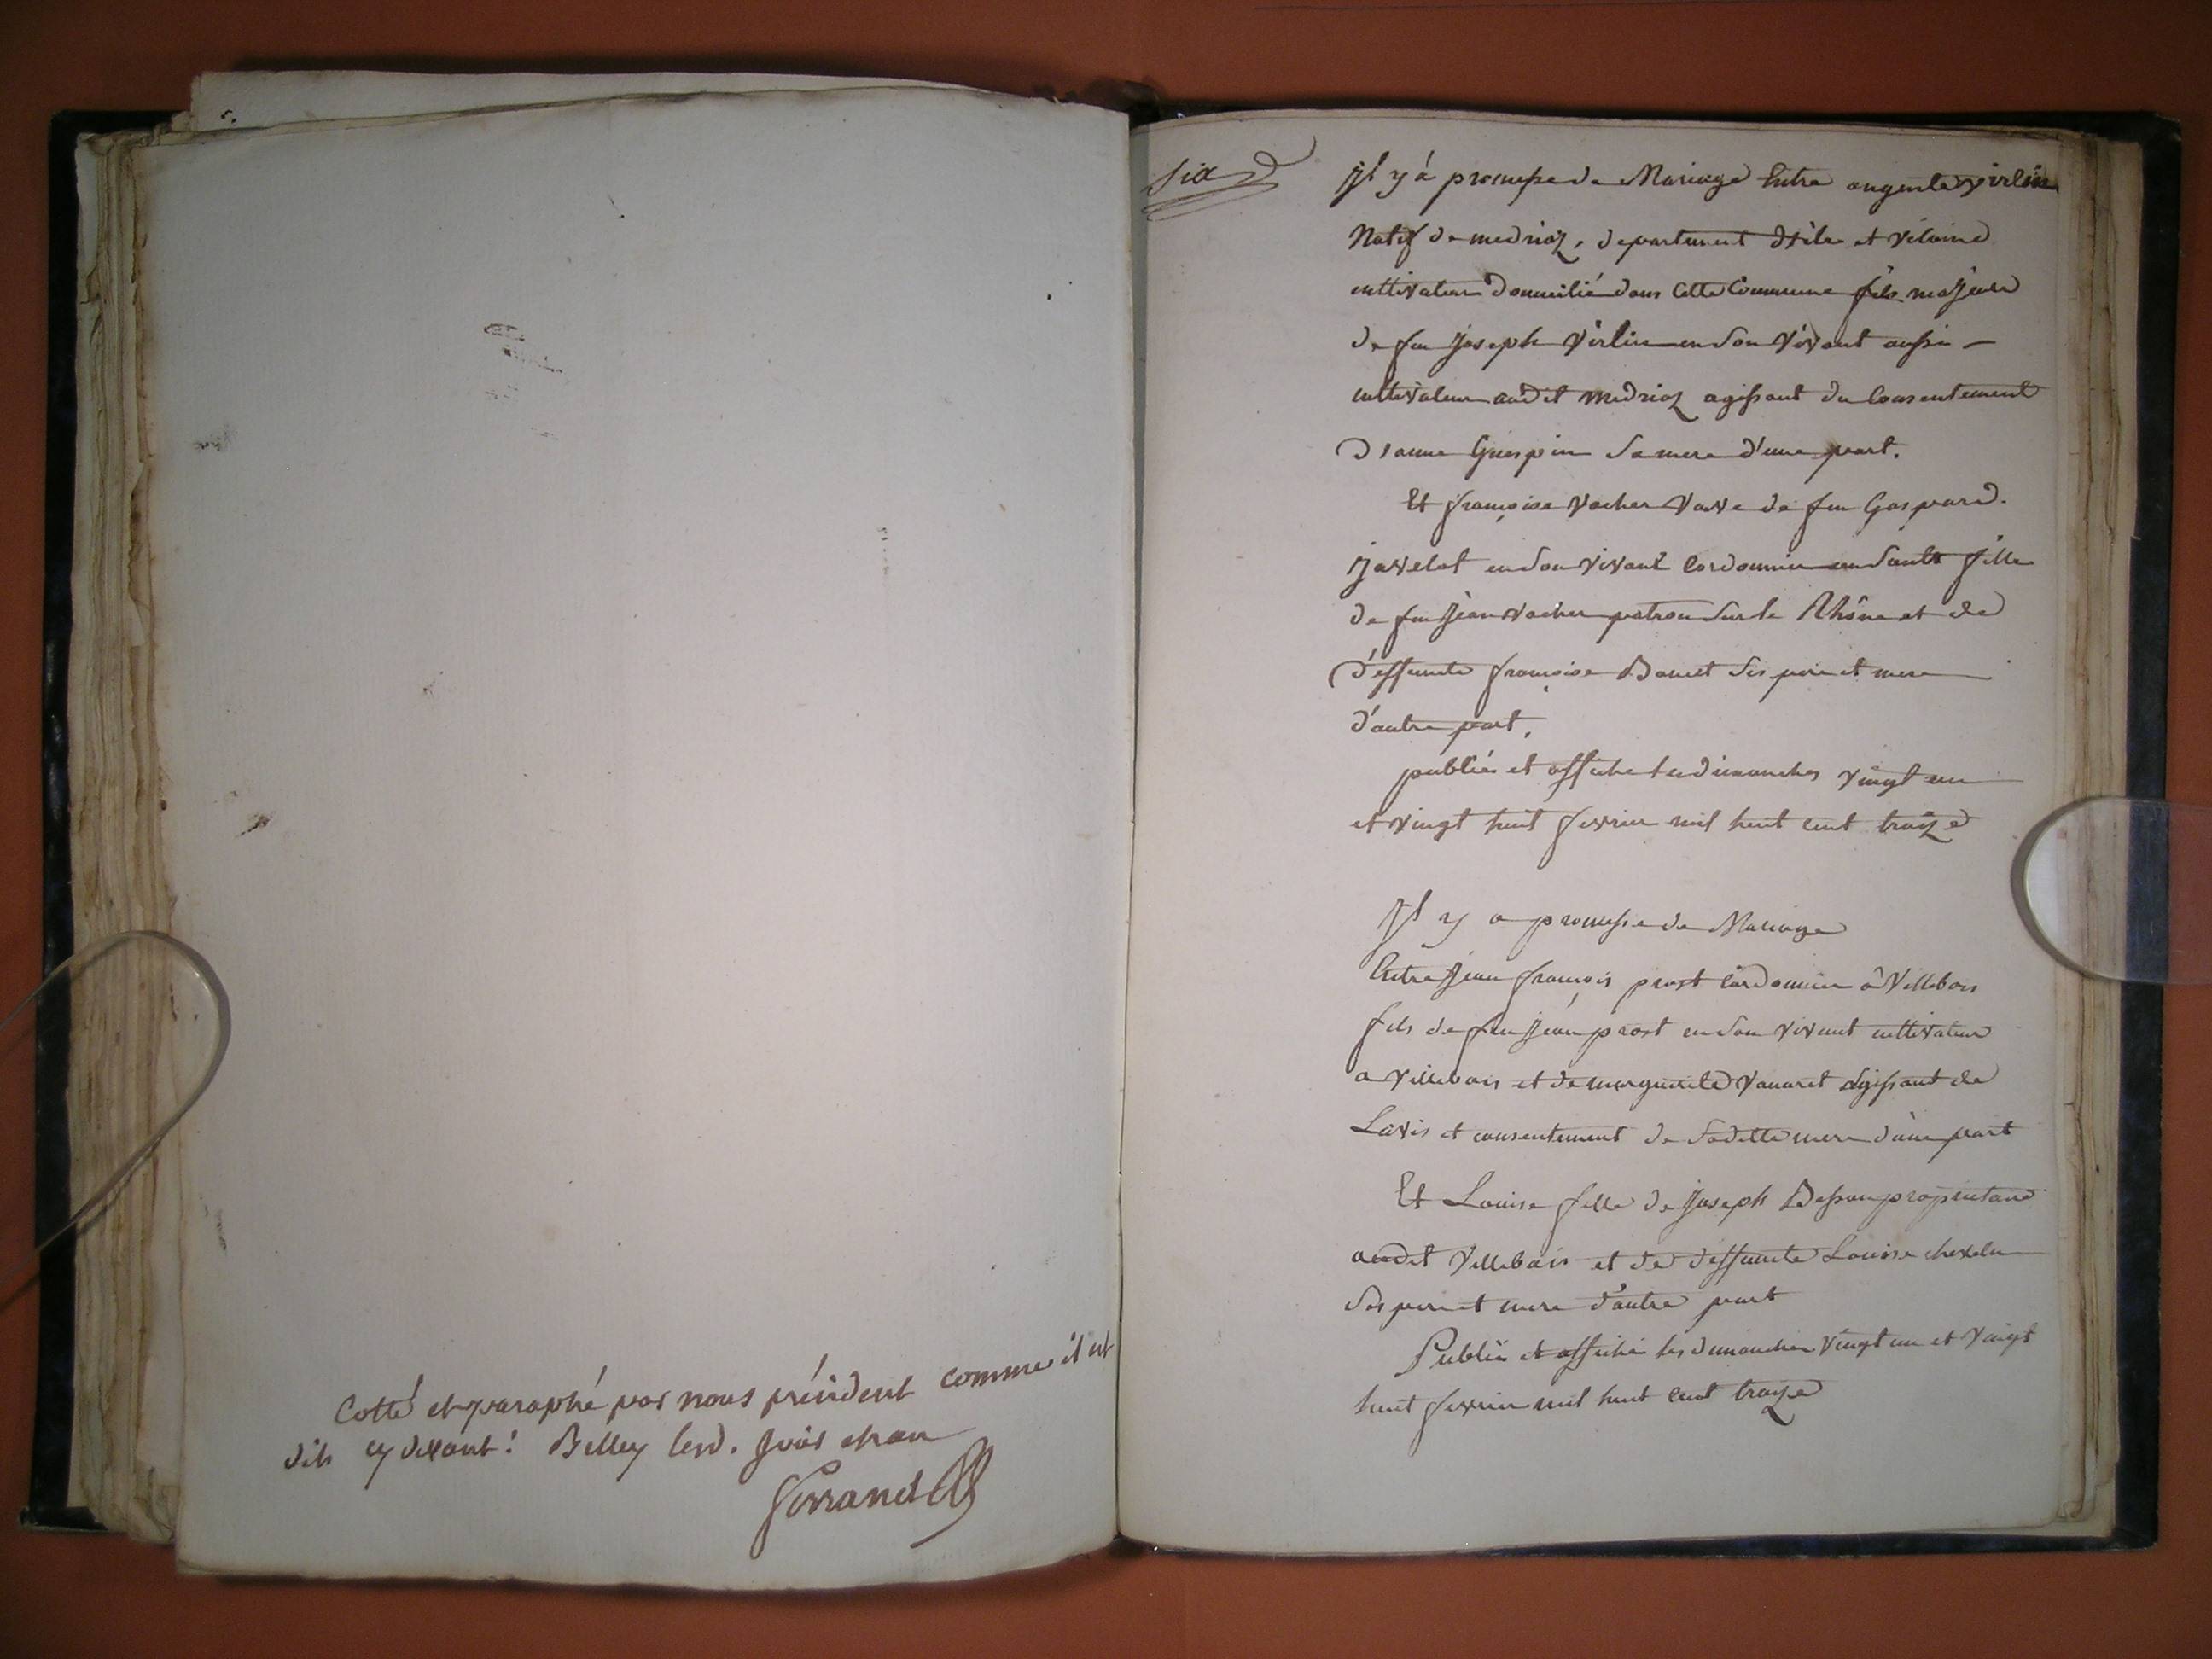 Cotté et paraphé par nous président comme il est
dit cy devant. Belley led. jour et an
Ferrand
six
Il y á promesse de Mariage Entre virlin
Natif de medriaz, departement d'ile et vilaine
cultivateur domicilié dans Cette Commune fils majeur
de feu Joseph Virlin en son vivant aussi
cultivateur audit medriaz agissant du Consentement
D'anne Guespin sa mere d'une part.
Et françoise Vacher vauve de feu Gaspard
Javelot en son vivant Cordonnier en Sault fille
de feu Jean Vacher patron sur le Rhône et de
deffunte françoise Bonnet ses pere et mere
d'autre part,
publiés et affiché les dimanches vingt un
et vingt huit fevrier mil huit cent traize
Il y a promesse de Mariage
Entre Jean françois prost Cordonnier à Villebois
fils de feu Jean prost en son vivant cultivateur
a Villebois et de marguerite Vanaret agissant de
Lavis et consentement de sadite mere d'une part
Et Louise fille de Joseph Besson proprietaire
audit Villebois et de deffunte Louise chevelu
ses pere et mere d'autre part
Publié et affiché les dimanches vingt un et vingt
huit fevrier mil huit cent traize